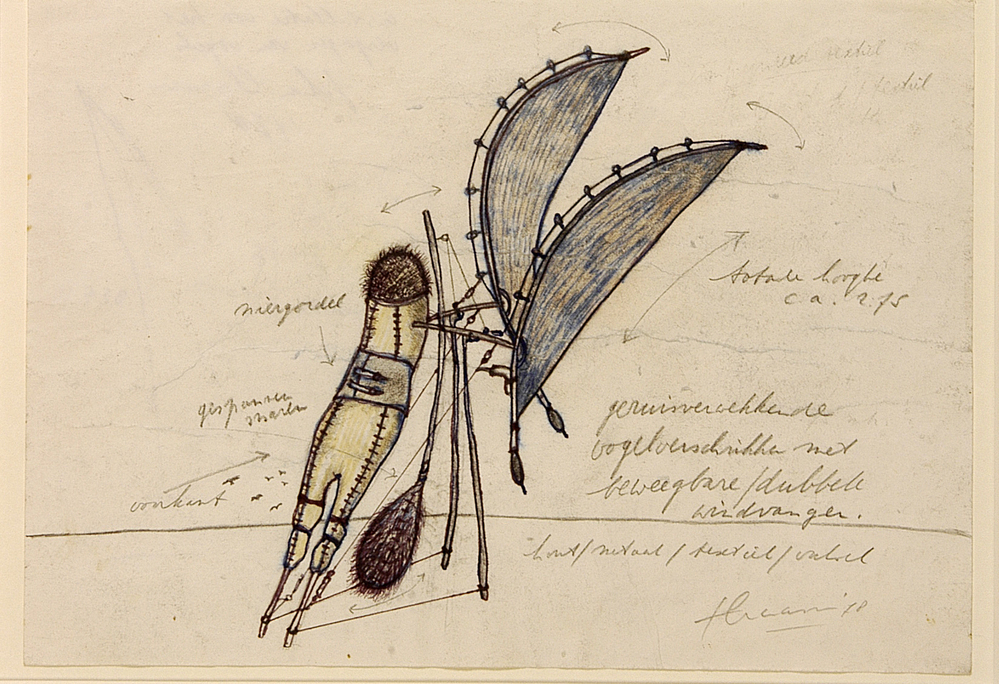 textiel
textiel
totale hoogte
c a. 2.75
niergordel
gespannen
snaren
geruisverwekkende
vogelverschrikker met
beweegbare/dubbele
windvanger.
voorkant
hout/metaal/textiel/
'78